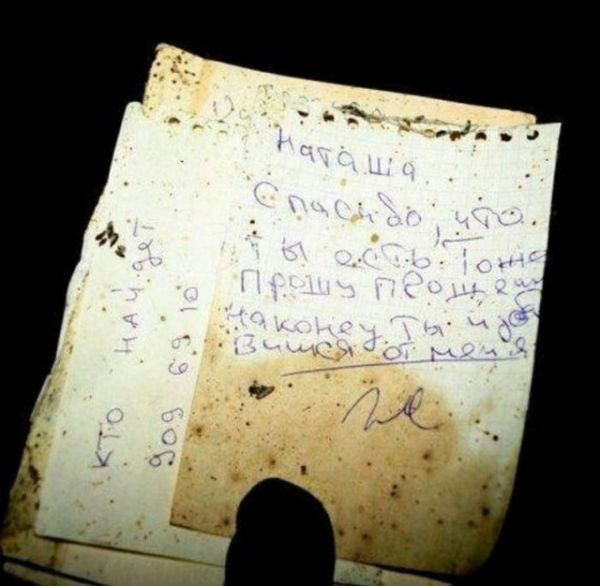 Наташа
Спасибо, что
ты есть. Тоже
Прошу прощени
Наконец ты изб
вишся от меня
КТО НАЙ ДЯТ
909 69 10